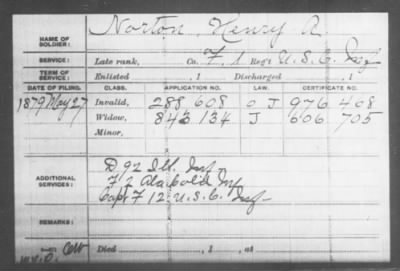 NAME OF SOLDIER: Norton, Henry A.
SERVICE: Late rank, Co. F, 1 Reg't U.S.C. Inf
TERM OF SERVICE: Enlisted , 1 Discharged , 1
DATE OF FILING. CLASS. APPLICATION NO. LAW. CERTIFICATE NO.
1879 May 27 Invalid, 288 608 O J 976 408
Widow, 843 134 J 606 705
Minor,
ADDITIONAL SERVICES: D 92 Ill. Inf
Inf
Capt F 12 U.S.C. Inf
REMARKS:
Died , 1 , at